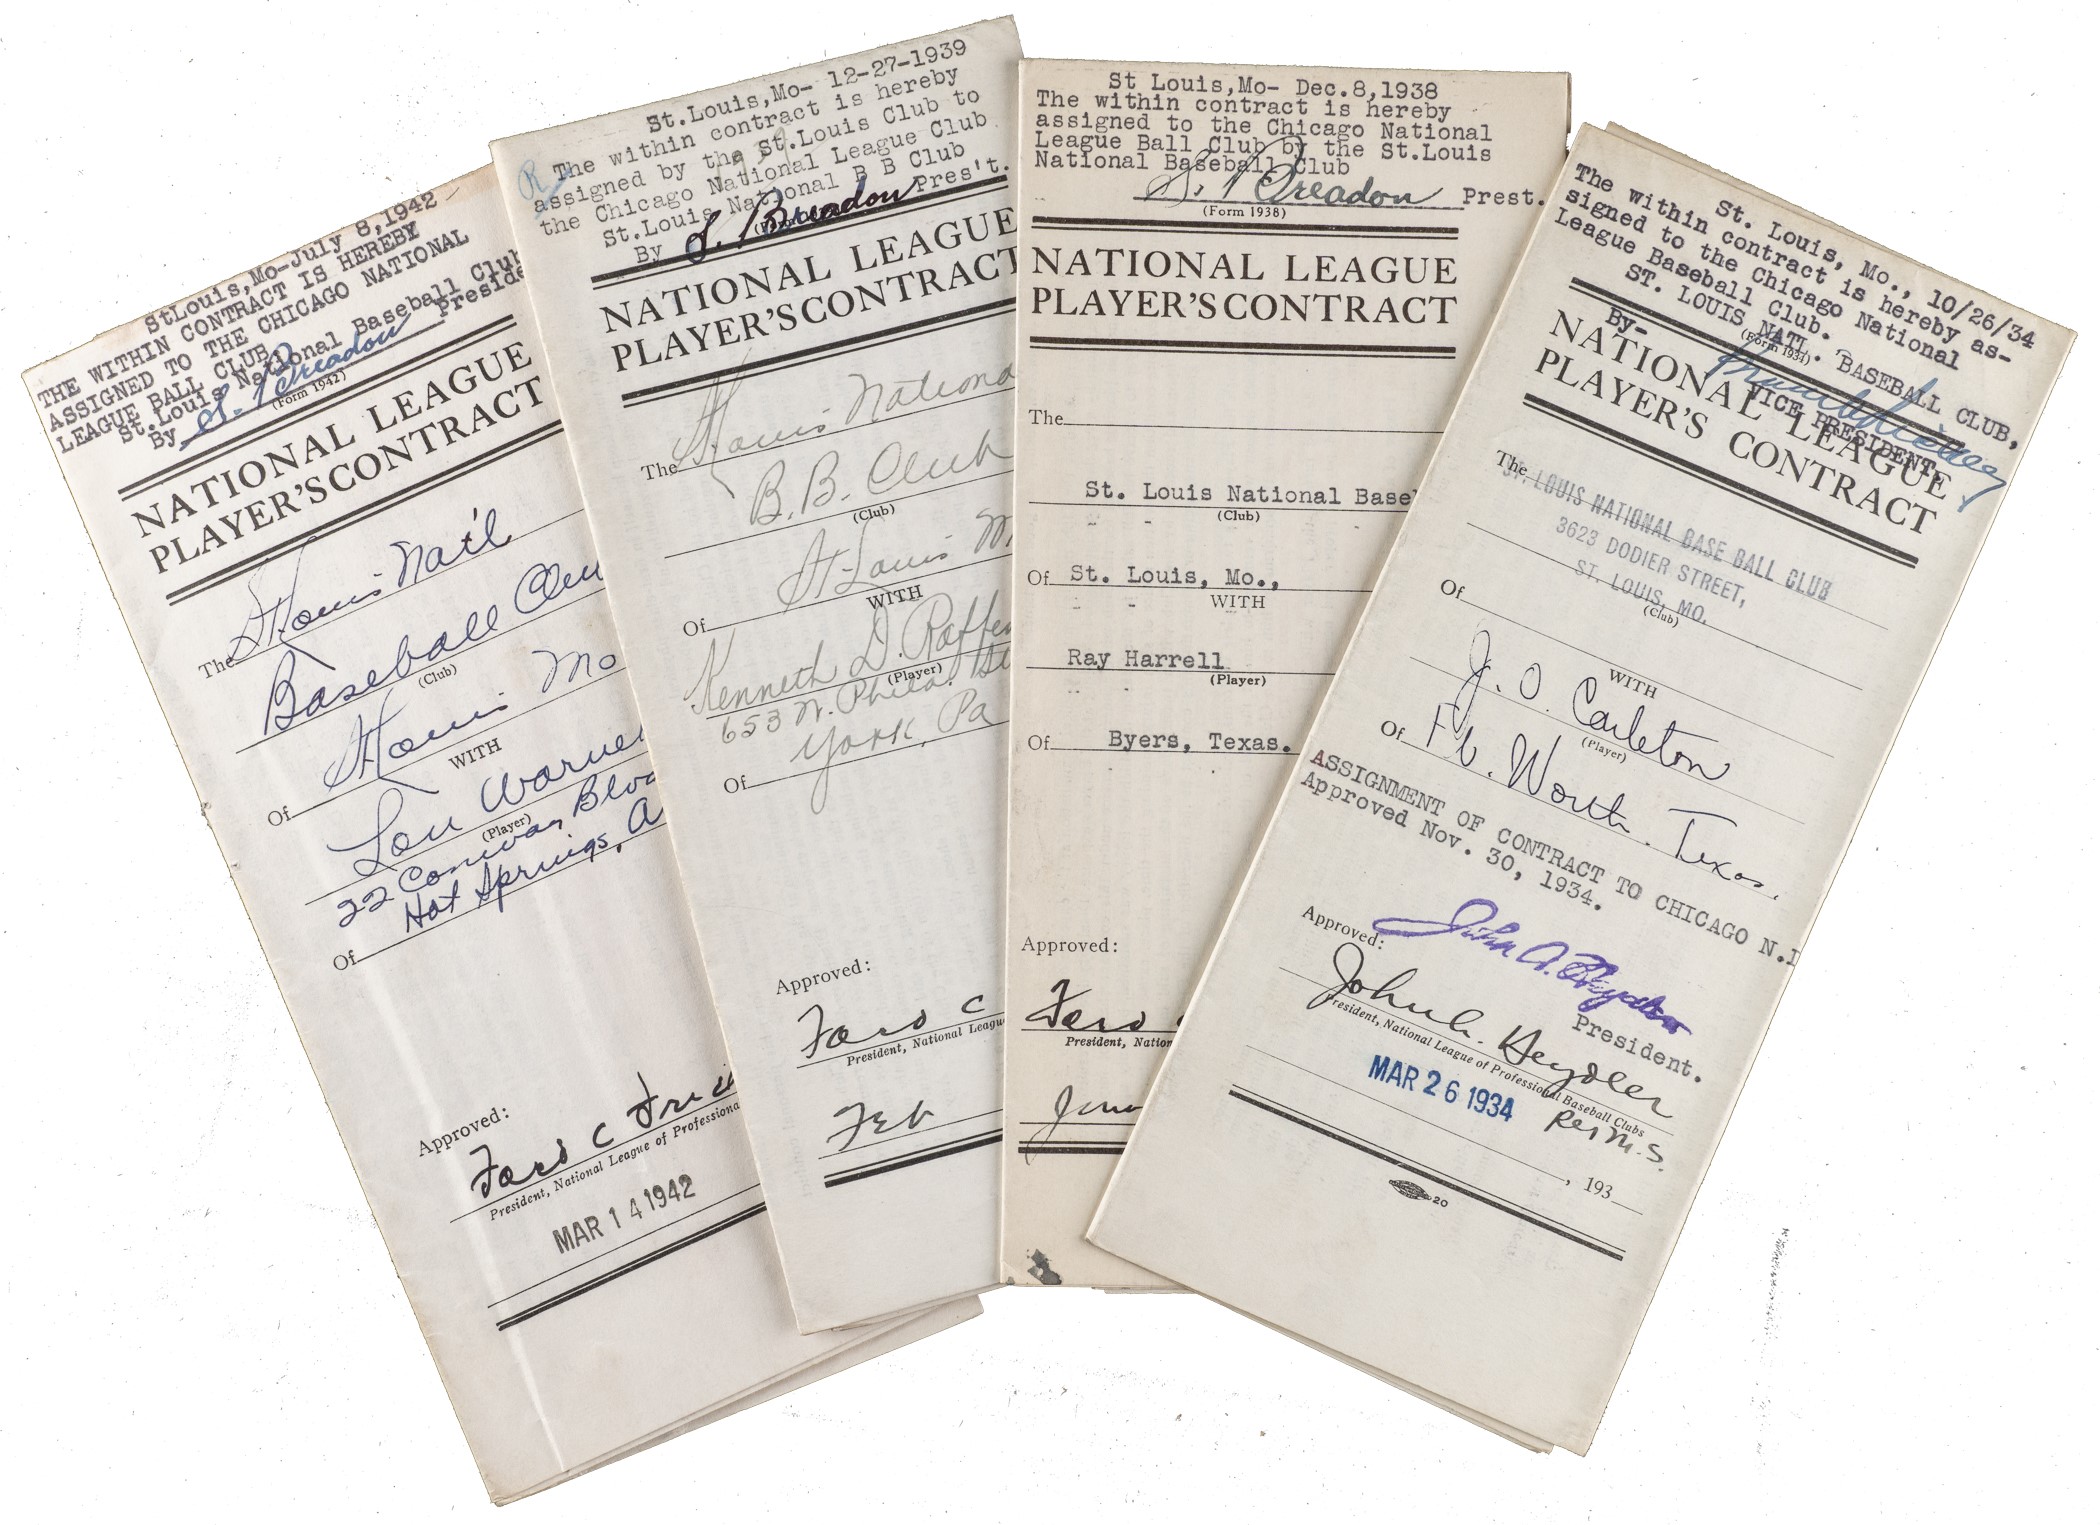 StLouis,Mo-July 8,1942
THE WITHIN CONTRACT IS HEREBY
ASSIGNED TO THE CHICAGO NATIONAL
LEAGUE BALL CLUB
St.Louis National Baseball Club
By S. Breadon Preside
(Form 1942)
NATIONAL LEAGUE
PLAYER'S CONTRACT
The St Louis Nat'l
Baseball Clu
(Club)
Of St Louis Mo
WITH
Lou Warne
(Player)
22 Conway Blvd
Hot Springs, A
Of
Approved:
Ford C Frick
President, National League of Professiona
MAR 14 1942
St.Louis,Mo- 12-27-1939
The within contract is hereby
assigned by the St.Louis Club to
the Chicago National League Club
St.Louis National B B Club
By S. Breadon Pres't.
NATIONAL LEAGUE
PLAYER'S CONTRACT
The St Louis Nationa
B.B. Club
(Club)
Of St Louis M
WITH
Kenneth D. Raffen
(Player)
653 N. Phila. St
York, Pa
Of
Approved:
Ford C
President, National Leagu
Feb
St Louis,Mo- Dec.8,1938
The within contract is hereby
assigned to the Chicago National
League Ball Club by the St.Louis
National Baseball Club
S. Breadon Prest.
(Form 1938)
NATIONAL LEAGUE
PLAYER'S CONTRACT
The
St. Louis National Base
(Club)
Of St. Louis, Mo.,
WITH
Ray Harrell
(Player)
Of Byers, Texas.
Approved:
Ford
President, Natio
St. Louis, Mo., 10/26/34
The within contract is hereby as-
signed to the Chicago National
League Baseball Club.
ST. LOUIS NATL. BASEBALL CLUB,
By-
VICE PRESIDENT.
(Form 1934)
NATIONAL LEAGUE
PLAYER'S CONTRACT
The ST. LOUIS NATIONAL BASE BALL CLUB
3623 DODIER STREET,
ST. LOUIS, MO.
Of
(Club)
WITH
J. O. Carleton
(Player)
Of Ft. Worth. Texas.
ASSIGNMENT OF CONTRACT TO CHICAGO N.L
Approved Nov. 30, 1934.
Approved: John A. Heydler
President.
John A. Heydler
President, National League of Professional Baseball Clubs
Per M.S.
MAR 26 1934
, 193
20